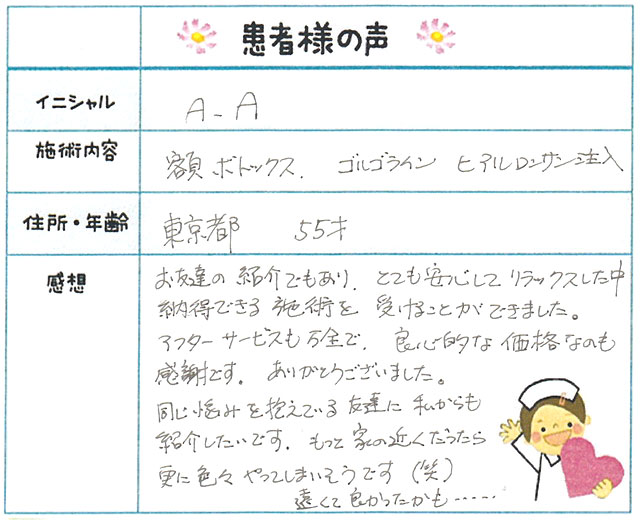 患者様の声
イニシャル A-A
施術内容 額 ボトックス. ゴルゴライン ヒアルロンサン注入
住所・年齢 東京都 55才
感想 お友達の紹介でもあり、とても安心してリラックスした中
納得できる施術を受けることができました。
アフターサービスも万全で、良心的な価格なのも
感謝です。ありがとうございました。
同じ悩みを抱えている友達に私からも
紹介したいです。もっと家の近くだったら
更に色々やってしまいそうです(笑)
遠くて良かったかも……